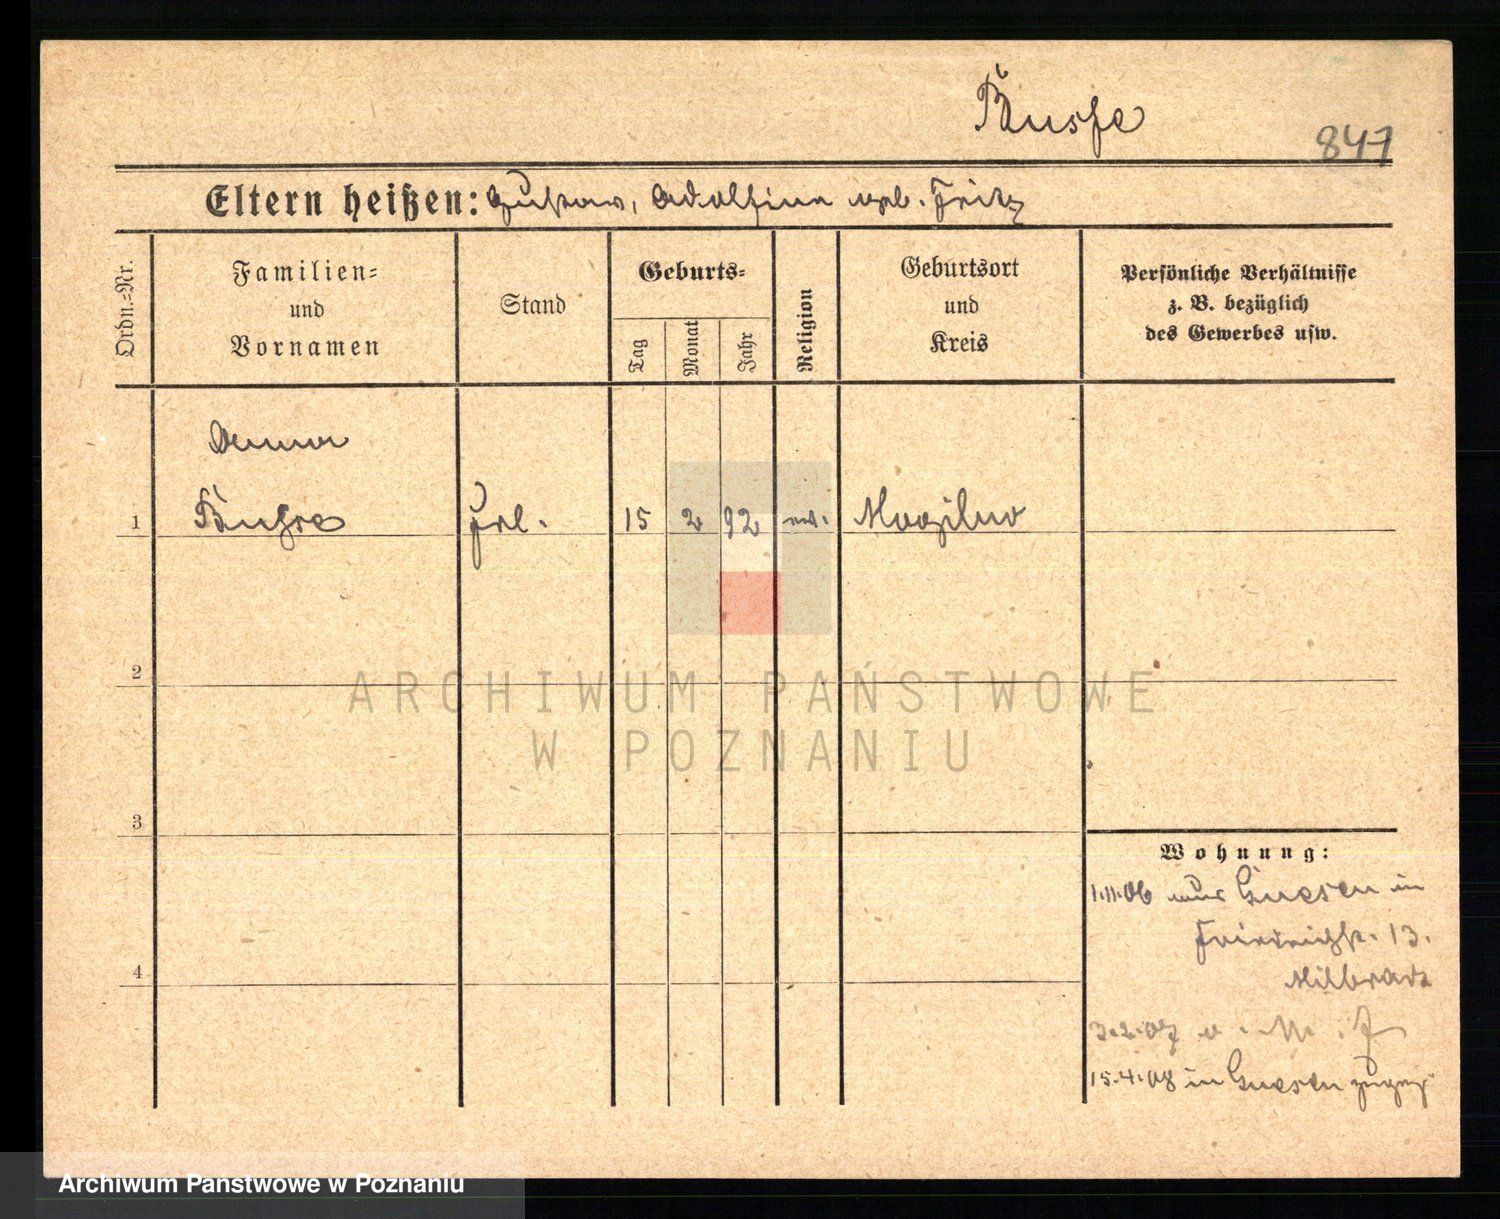 Busse
847
Eltern heißen: Gustav, Adolfine geb. Fritz
Ordn.=Nr.
Familien=
und
Vornamen
Stand
Geburts=
Tag
Monat
Jahr
Religion
Geburtsort
und
Kreis
Persönliche Verhältnisse
z. B. bezüglich
des Gewerbes usw.
Anna
1 Busse Frl. 15 2 92 ev. Mogilno
2
3
4
Wohnung:
1.11.06 Gnesen in
Friedrichstr. 13.
Milbradt
3.2.07
15.4.08 in Gnesen
ARCHIWUM PAŃSTWOWE
W POZNANIU
Archiwum Państwowe w Poznaniu